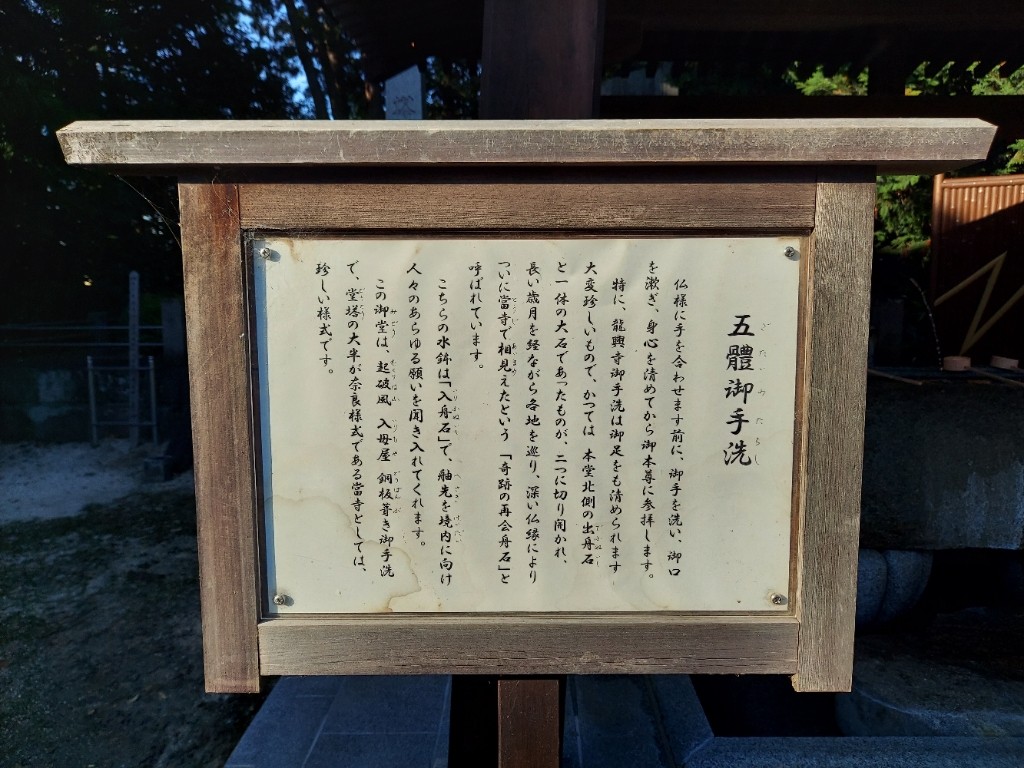 五體御手洗
仏様に手を合わせます前に、御手を洗い、御口
を漱ぎ、身心を清めてから御本尊に参拝します。
特に、龍興寺御手洗は御足をも清められます
大変珍しいもので、かつては 本堂北側の出舟石
と一体の大石であったものが、二つに切り開かれ、
長い歳月を経ながら各地を巡り、深い仏縁により
ついに當寺で相見えたという「奇跡の再会舟石」と
呼ばれています。
こちらの水鉢は「入舟石」で、舳先を境内に向け
人々のあらゆる願いを聞き入れてくれます。
この御堂は、起破風 入母屋 銅板葺き御手洗
で、堂塔の大半が奈良様式である當寺としては、
珍しい様式です。